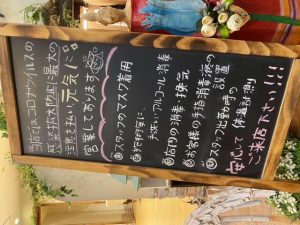 当店では、コロナウイルスの
感染拡大防止に最大の
注意を払い、元気に
営業しております
①スタッフのマスク着用
手洗い・アルコール消毒
③店内の消毒・換気
④お客様の手指消毒液の
設置
⑤スタッフ出勤時の
体温計測
安心して
ご来店下さい!!!